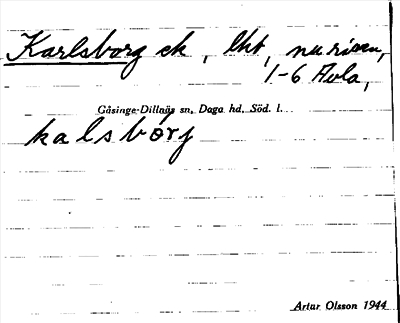 Karlsborg ek, lht, nu riven,
1-6 Avla,
Gåsinge-Dillnäs sn, Daga hd, Söd. l.
kalsbórj
Artur Olsson 1944